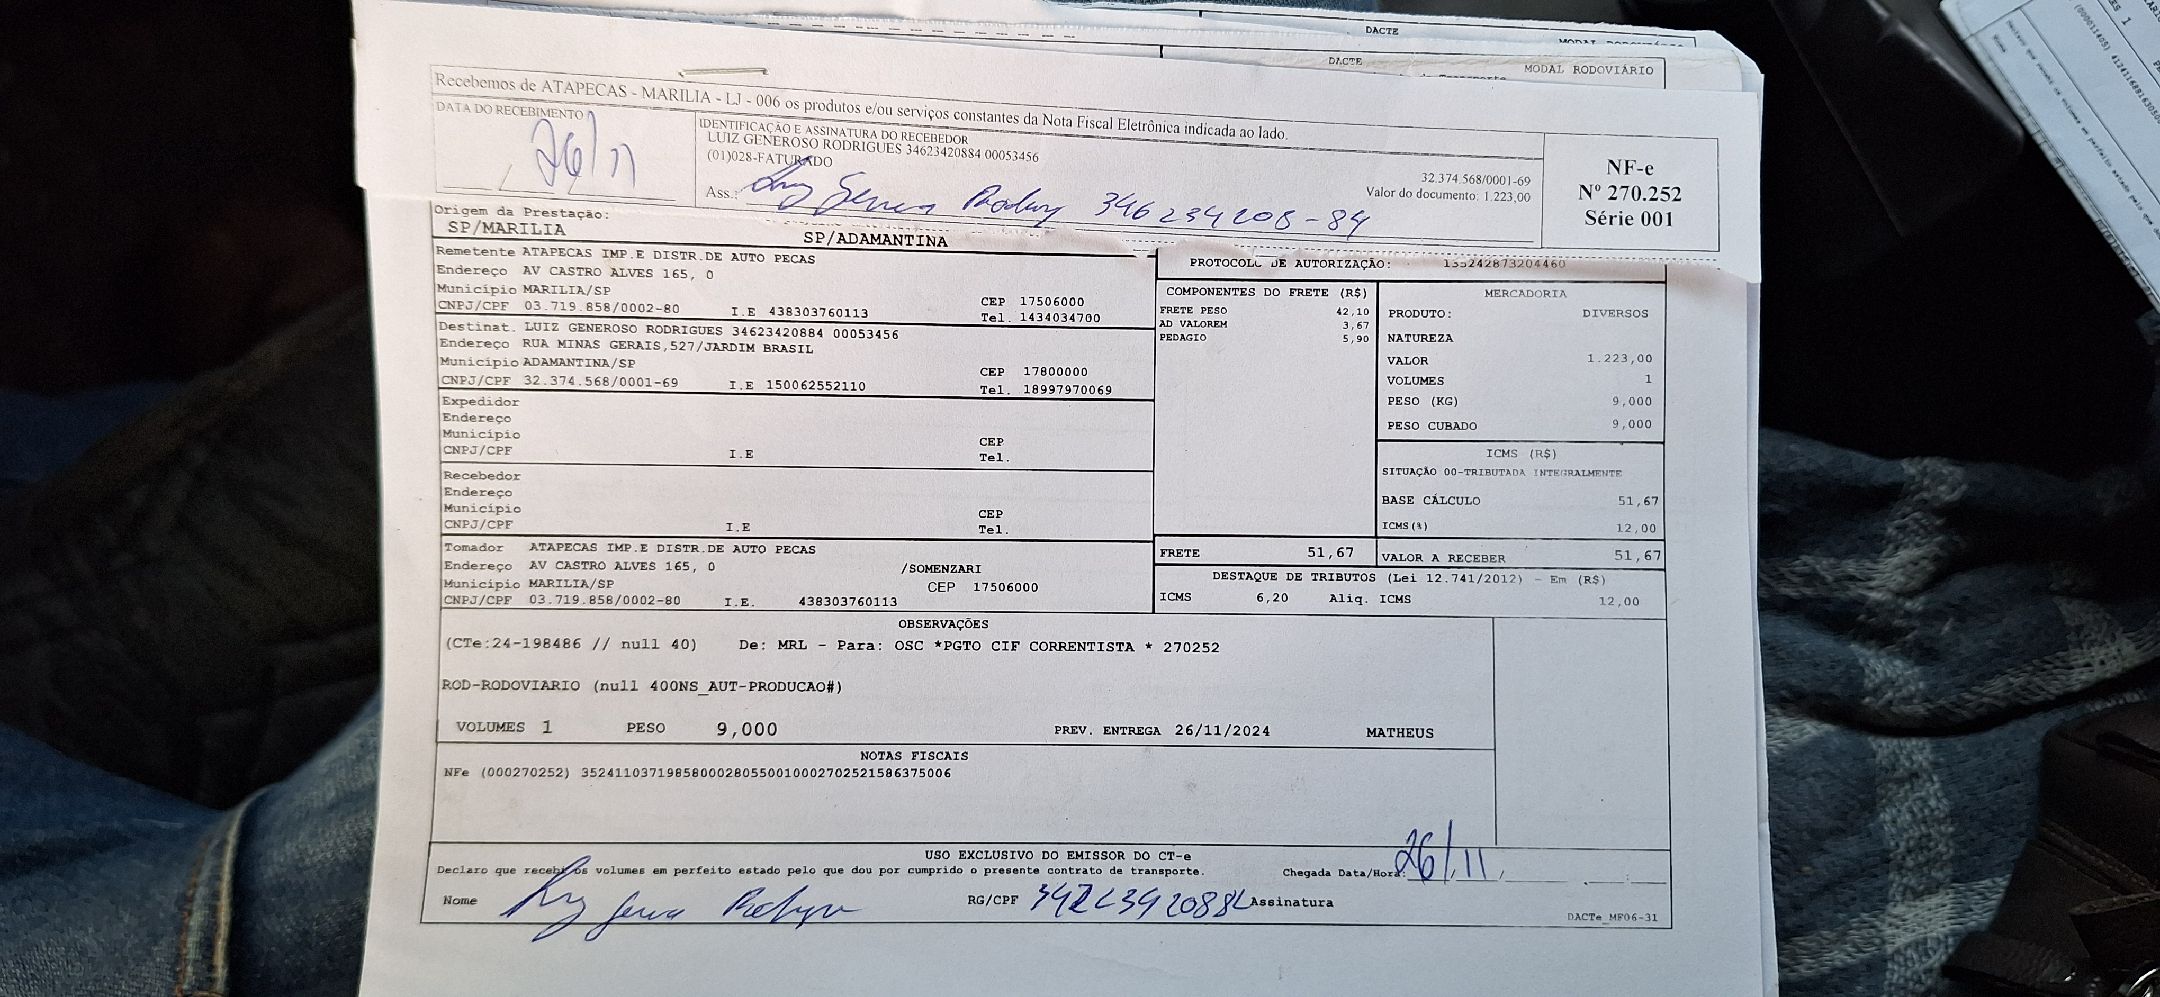 DACTE
DACTE
MODAL RODOVIÁRIO
Recebemos de ATAPECAS - MARILIA - LJ - 006 os produtos e/ou serviços constantes da Nota Fiscal Eletrônica indicada ao lado.
DATA DO RECEBIMENTO
26/11
IDENTIFICAÇÃO E ASSINATURA DO RECEBEDOR
LUIZ GENEROSO RODRIGUES 34623420884 00053456
(01)028-FATURADO
32.374.568/0001-69
Valor do documento: 1.223,00
Ass.: 346234208-84
NF-e
Nº 270.252
Série 001
Origem da Prestação:
SP/MARILIA
SP/ADAMANTINA
Remetente ATAPECAS IMP.E DISTR.DE AUTO PECAS
Endereço AV CASTRO ALVES 165, 0
Município MARILIA/SP
CEP 17506000
CNPJ/CPF 03.719.858/0002-80 I.E 438303760113 Tel. 1434034700
Destinat. LUIZ GENEROSO RODRIGUES 34623420884 00053456
Endereço RUA MINAS GERAIS,527/JARDIM BRASIL
Município ADAMANTINA/SP
CEP 17800000
CNPJ/CPF 32.374.568/0001-69 I.E 150062552110 Tel. 18997970069
Expedidor
Endereço
Município CEP
CNPJ/CPF I.E Tel.
Recebedor
Endereço
Município CEP
CNPJ/CPF I.E Tel.
Tomador ATAPECAS IMP.E DISTR.DE AUTO PECAS
Endereço AV CASTRO ALVES 165, 0 /SOMENZARI
Município MARILIA/SP CEP 17506000
CNPJ/CPF 03.719.858/0002-80 I.E. 438303760113
PROTOCOLO DE AUTORIZAÇÃO: 135242873204460
COMPONENTES DO FRETE (R$)
FRETE PESO 42,10
AD VALOREM 3,67
PEDAGIO 5,90
MERCADORIA
PRODUTO: DIVERSOS
NATUREZA
VALOR 1.223,00
VOLUMES 1
PESO (KG) 9,000
PESO CUBADO 9,000
ICMS (R$)
SITUAÇÃO 00-TRIBUTADA INTEGRALMENTE
BASE CÁLCULO 51,67
ICMS(%) 12,00
FRETE 51,67
VALOR A RECEBER 51,67
DESTAQUE DE TRIBUTOS (Lei 12.741/2012) - Em (R$)
ICMS 6,20 Aliq. ICMS 12,00
OBSERVAÇÕES
(CTe:24-198486 // null 40) De: MRL - Para: OSC *PGTO CIF CORRENTISTA * 270252
ROD-RODOVIARIO (null 400NS_AUT-PRODUCAO#)
VOLUMES 1 PESO 9,000 PREV. ENTREGA 26/11/2024 MATHEUS
NOTAS FISCAIS
NFe (000270252) 35241103719858000280550010002702521586375006
USO EXCLUSIVO DO EMISSOR DO CT-e
Declaro que recebi os volumes em perfeito estado pelo que dou por cumprido o presente contrato de transporte.
Chegada Data/Hora: 26/11
Nome
RG/CPF
Assinatura
DACTe_MF06-31